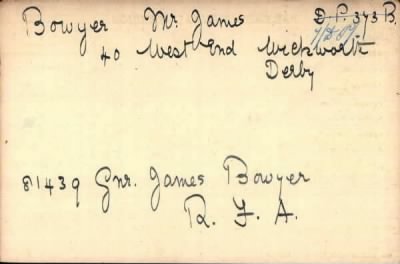 Bowyer Mr. James D.P. 373 B.
40 West End Wickworth
Derby
81439 Gnr. James Bowyer
R. F. A.